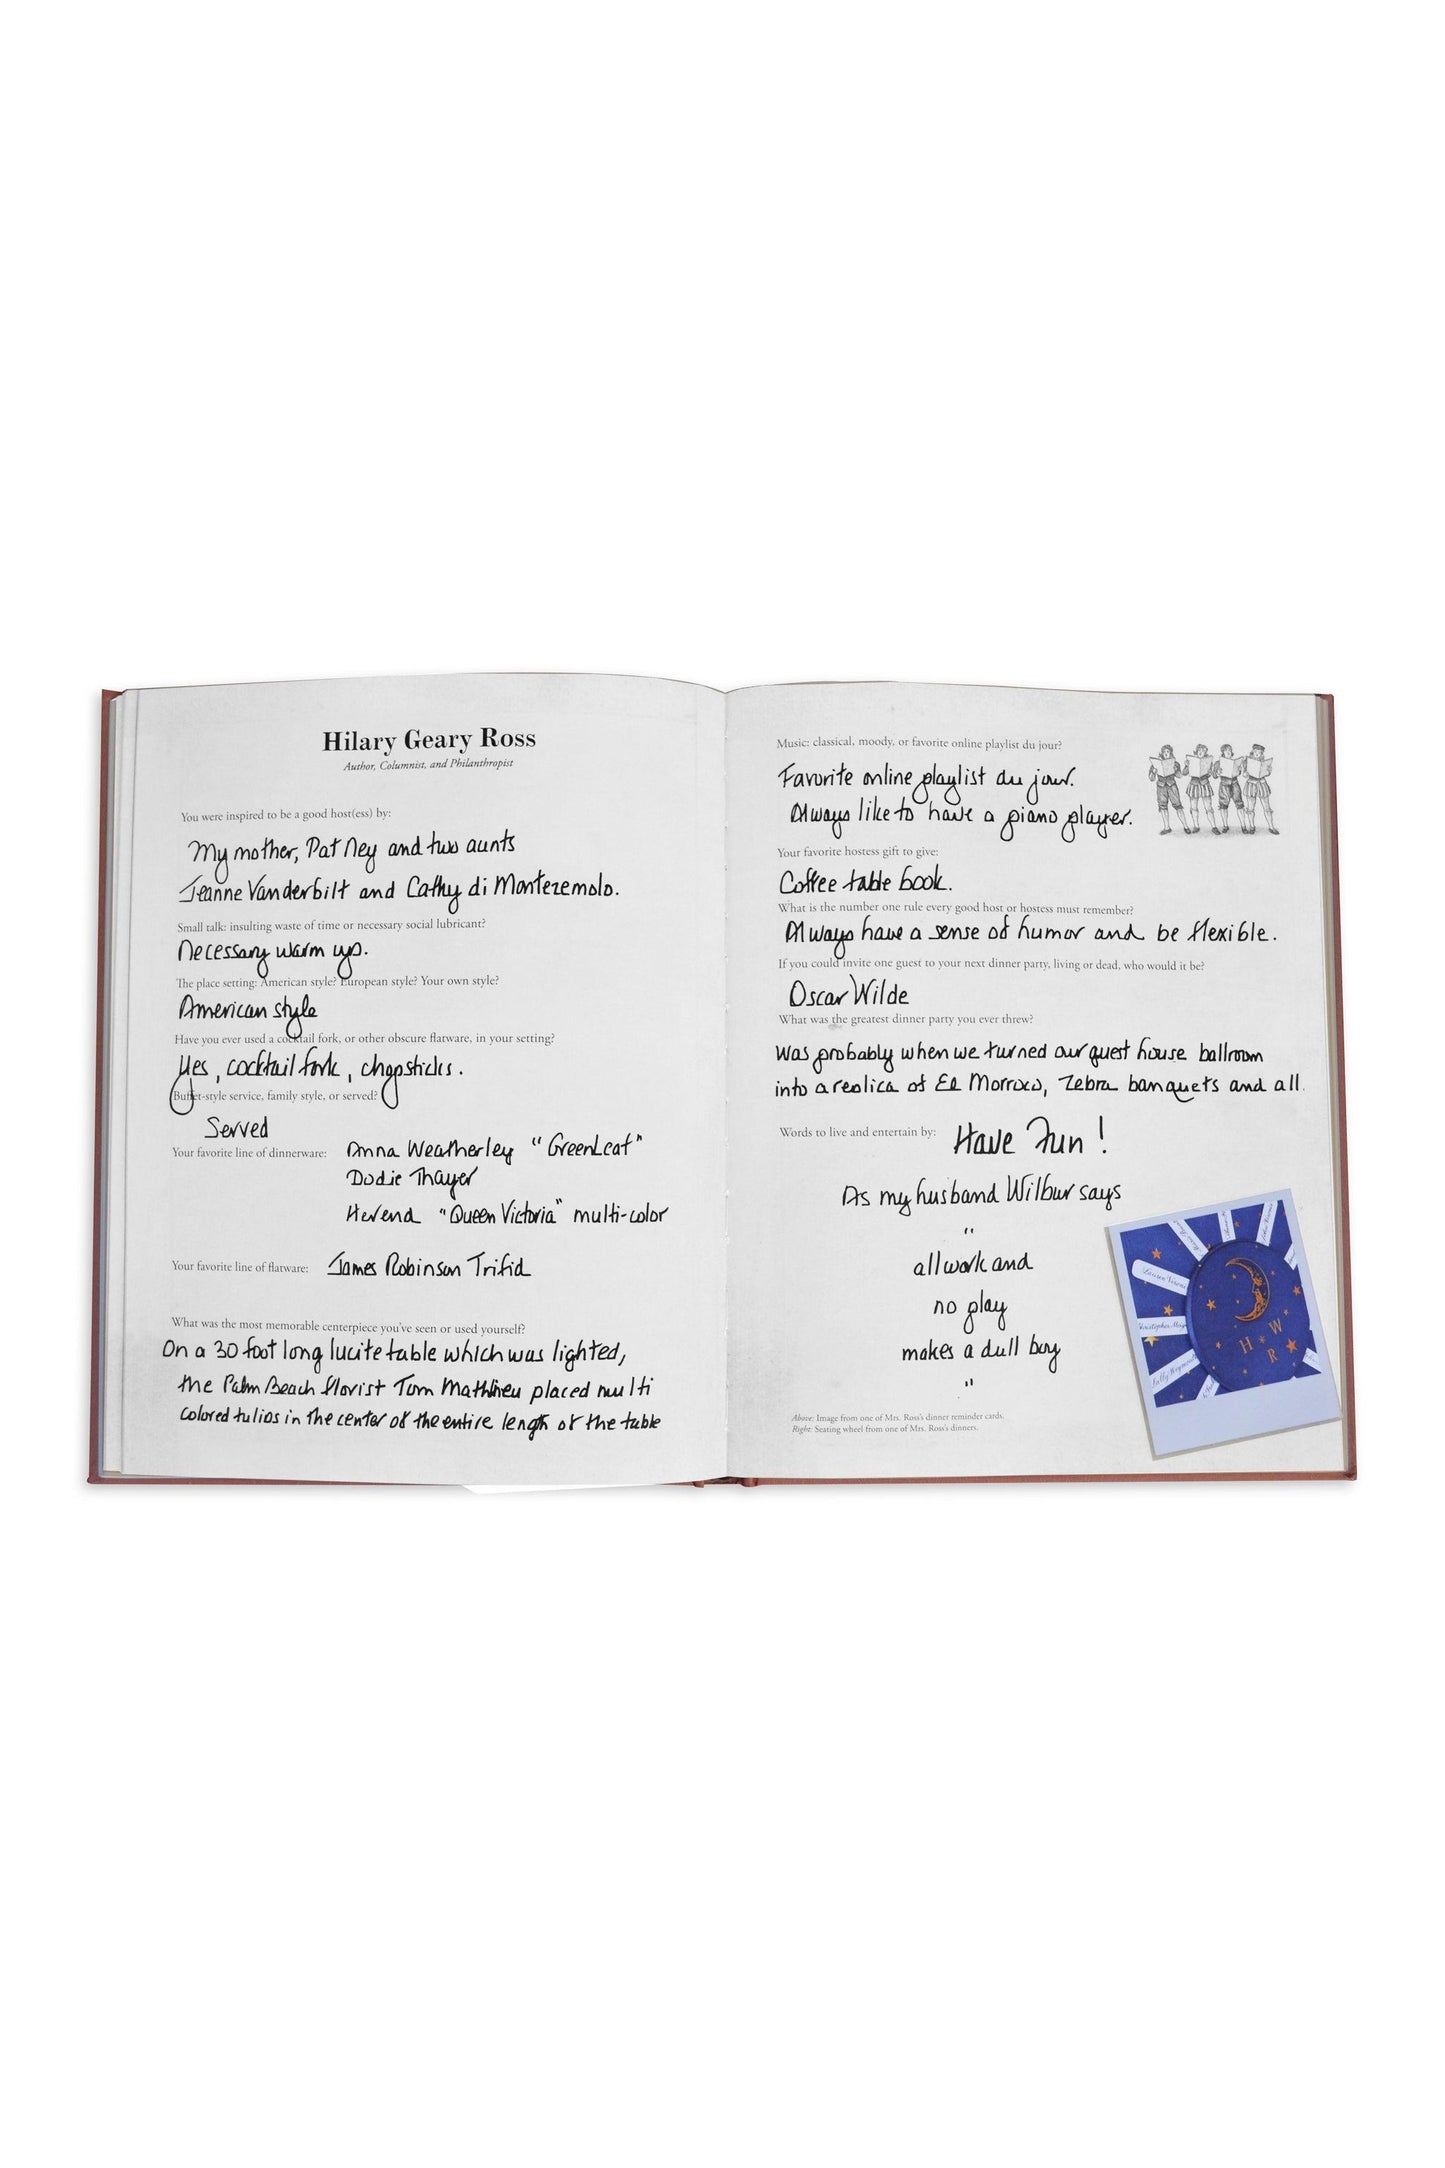 Hilary Geary Ross
Author, Columnist, and Philanthropist
You were inspired to be a good host(ess) by:
My mother, Pat Ney and two aunts
Jeanne Vanderbilt and Cathy di Montezemolo.
Small talk: insulting waste of time or necessary social lubricant?
Necessary warm ups.
The place setting: American style? European style? Your own style?
American style
Have you ever used a cocktail fork, or other obscure flatware, in your setting?
Yes, cocktail fork, chopsticks.
Buffet-style service, family style, or served?
Served
Your favorite line of dinnerware: Anna Weatherley "GreenLeaf"
Dodie Thayer
Herend "Queen Victoria" multi-color
Your favorite line of flatware: James Robinson Trifid
What was the most memorable centerpiece you've seen or used yourself?
On a 30 foot long lucite table which was lighted,
the Palm Beach florist Tom Mathieu placed multi
colored tulips in the center of the entire length of the table
Music: classical, moody, or favorite online playlist du jour?
Favorite online playlist du jour.
Always like to have a piano player.
Your favorite hostess gift to give:
Coffee table book.
What is the number one rule every good host or hostess must remember?
Always have a sense of humor and be flexible.
If you could invite one guest to your next dinner party, living or dead, who would it be?
Oscar Wilde
What was the greatest dinner party you ever threw?
Was probably when we turned our guest house ballroom
into a replica of El Morroco, Zebra banquets and all.
Words to live and entertain by: Have Fun!
As my husband Wilbur says
"
all work and
no play
makes a dull boy
"
Above: Image from one of Mrs. Ross's dinner reminder cards.
Right: Seating wheel from one of Mrs. Ross's dinners.
Lauren
Christopher
H * W
R